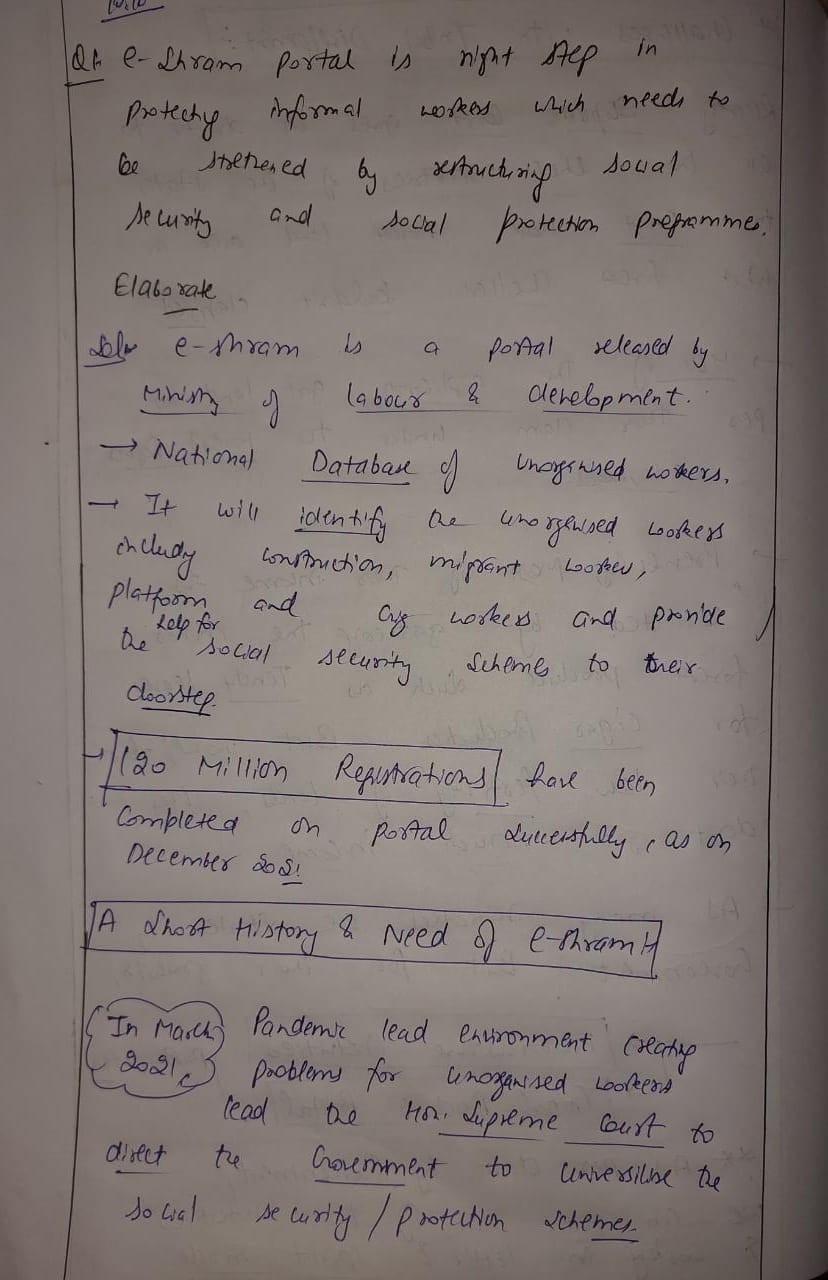 Q1 e-Shram portal is right step in
protecting informal workers which needs to
be by restructuring social
security and social protection programme.
Elaborate
Soln e-shram is a portal released by
Ministry of labour & development.
→ National Database of Unorganised workers.
→ It will identify the unorganised workers
including construction, migrant worker,
platform and Gig workers and provide
help for
the social security schemes to their
doorstep.
→ 120 Million Registrations have been
Completed on portal successfully, as on
December 2021
A Short History & Need of e-Shram
In March Pandemic lead environment creating
2021, problems for unorganised workers
lead the Hon. Supreme Court to
direct the Government to universilise the
social security / protection schemes.